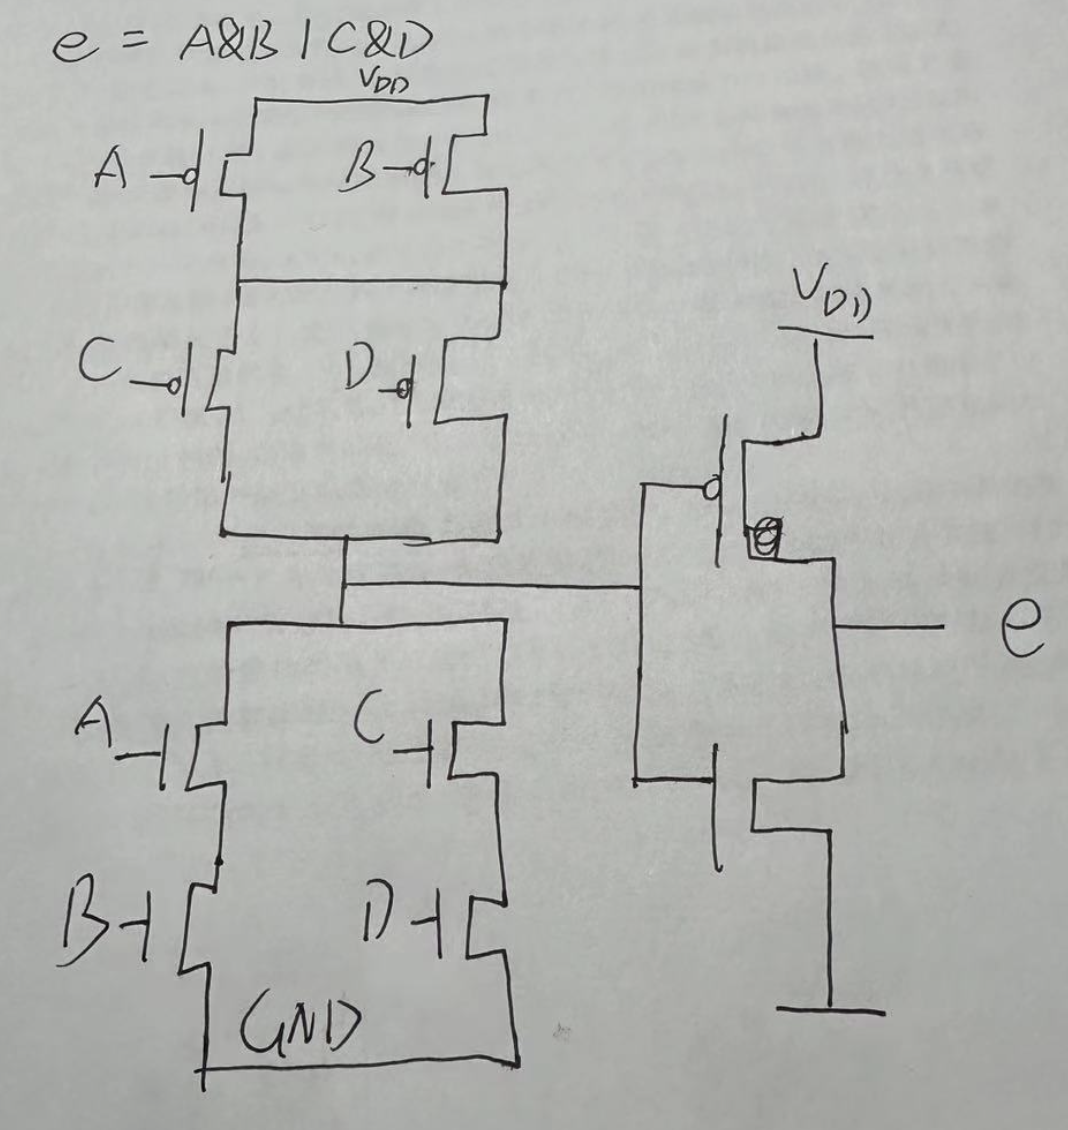 e = A&B | C&D
VDD
A
B
VDD
C
D
e
A
C
B
D
GND